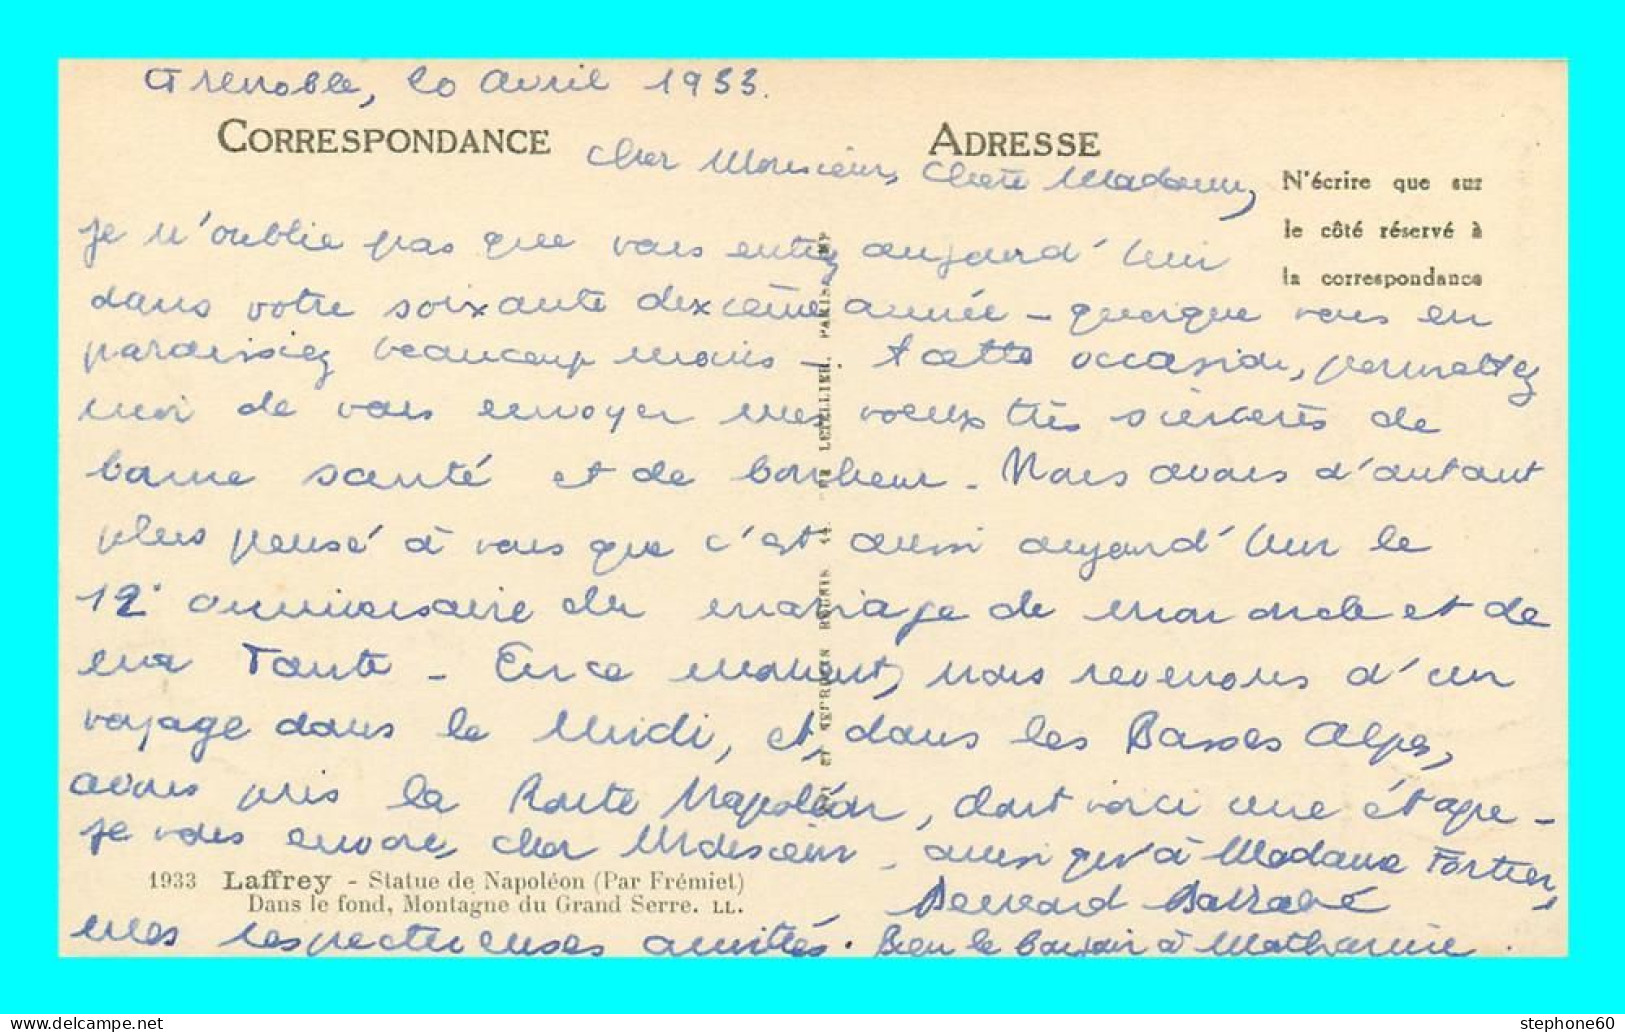 Grenoble, 20 avril 1933.
CORRESPONDANCE
ADRESSE
Cher Monsieur, Chère Madame,
N'écrire que sur
le côté réservé à
la correspondance
je n'oublie pas que vous entrez aujourd'hui
dans votre soixante dixième année - quoique vous en
paraissiez beaucoup moins - à cette occasion, permettez
moi de vous envoyer mes voeux très sincères de
bonne santé et de bonheur - Nous avons d'autant
plus pensé à vous que c'est aussi aujourd'hui le
12e anniversaire du mariage de mon oncle et de
ma Tante - En ce moment, nous revenons d'un
voyage dans le Midi, et, dans les Basses Alpes,
avons pris la Route Napoléon, dont voici une étape -
je vous envoie, cher Monsieur - ainsi qu'à Madame Fortier,
1933 Laffrey - Statue de Napoléon (Par Frémiet)
Dans le fond, Montagne du Grand Serre. LL.
Bernard
mes respectueuses amitiés. Bien le bonjour à
LEVY ET NEURDEIN RÉUNIS 44, RUE LETELLIER, PARIS, IMP
stephone60